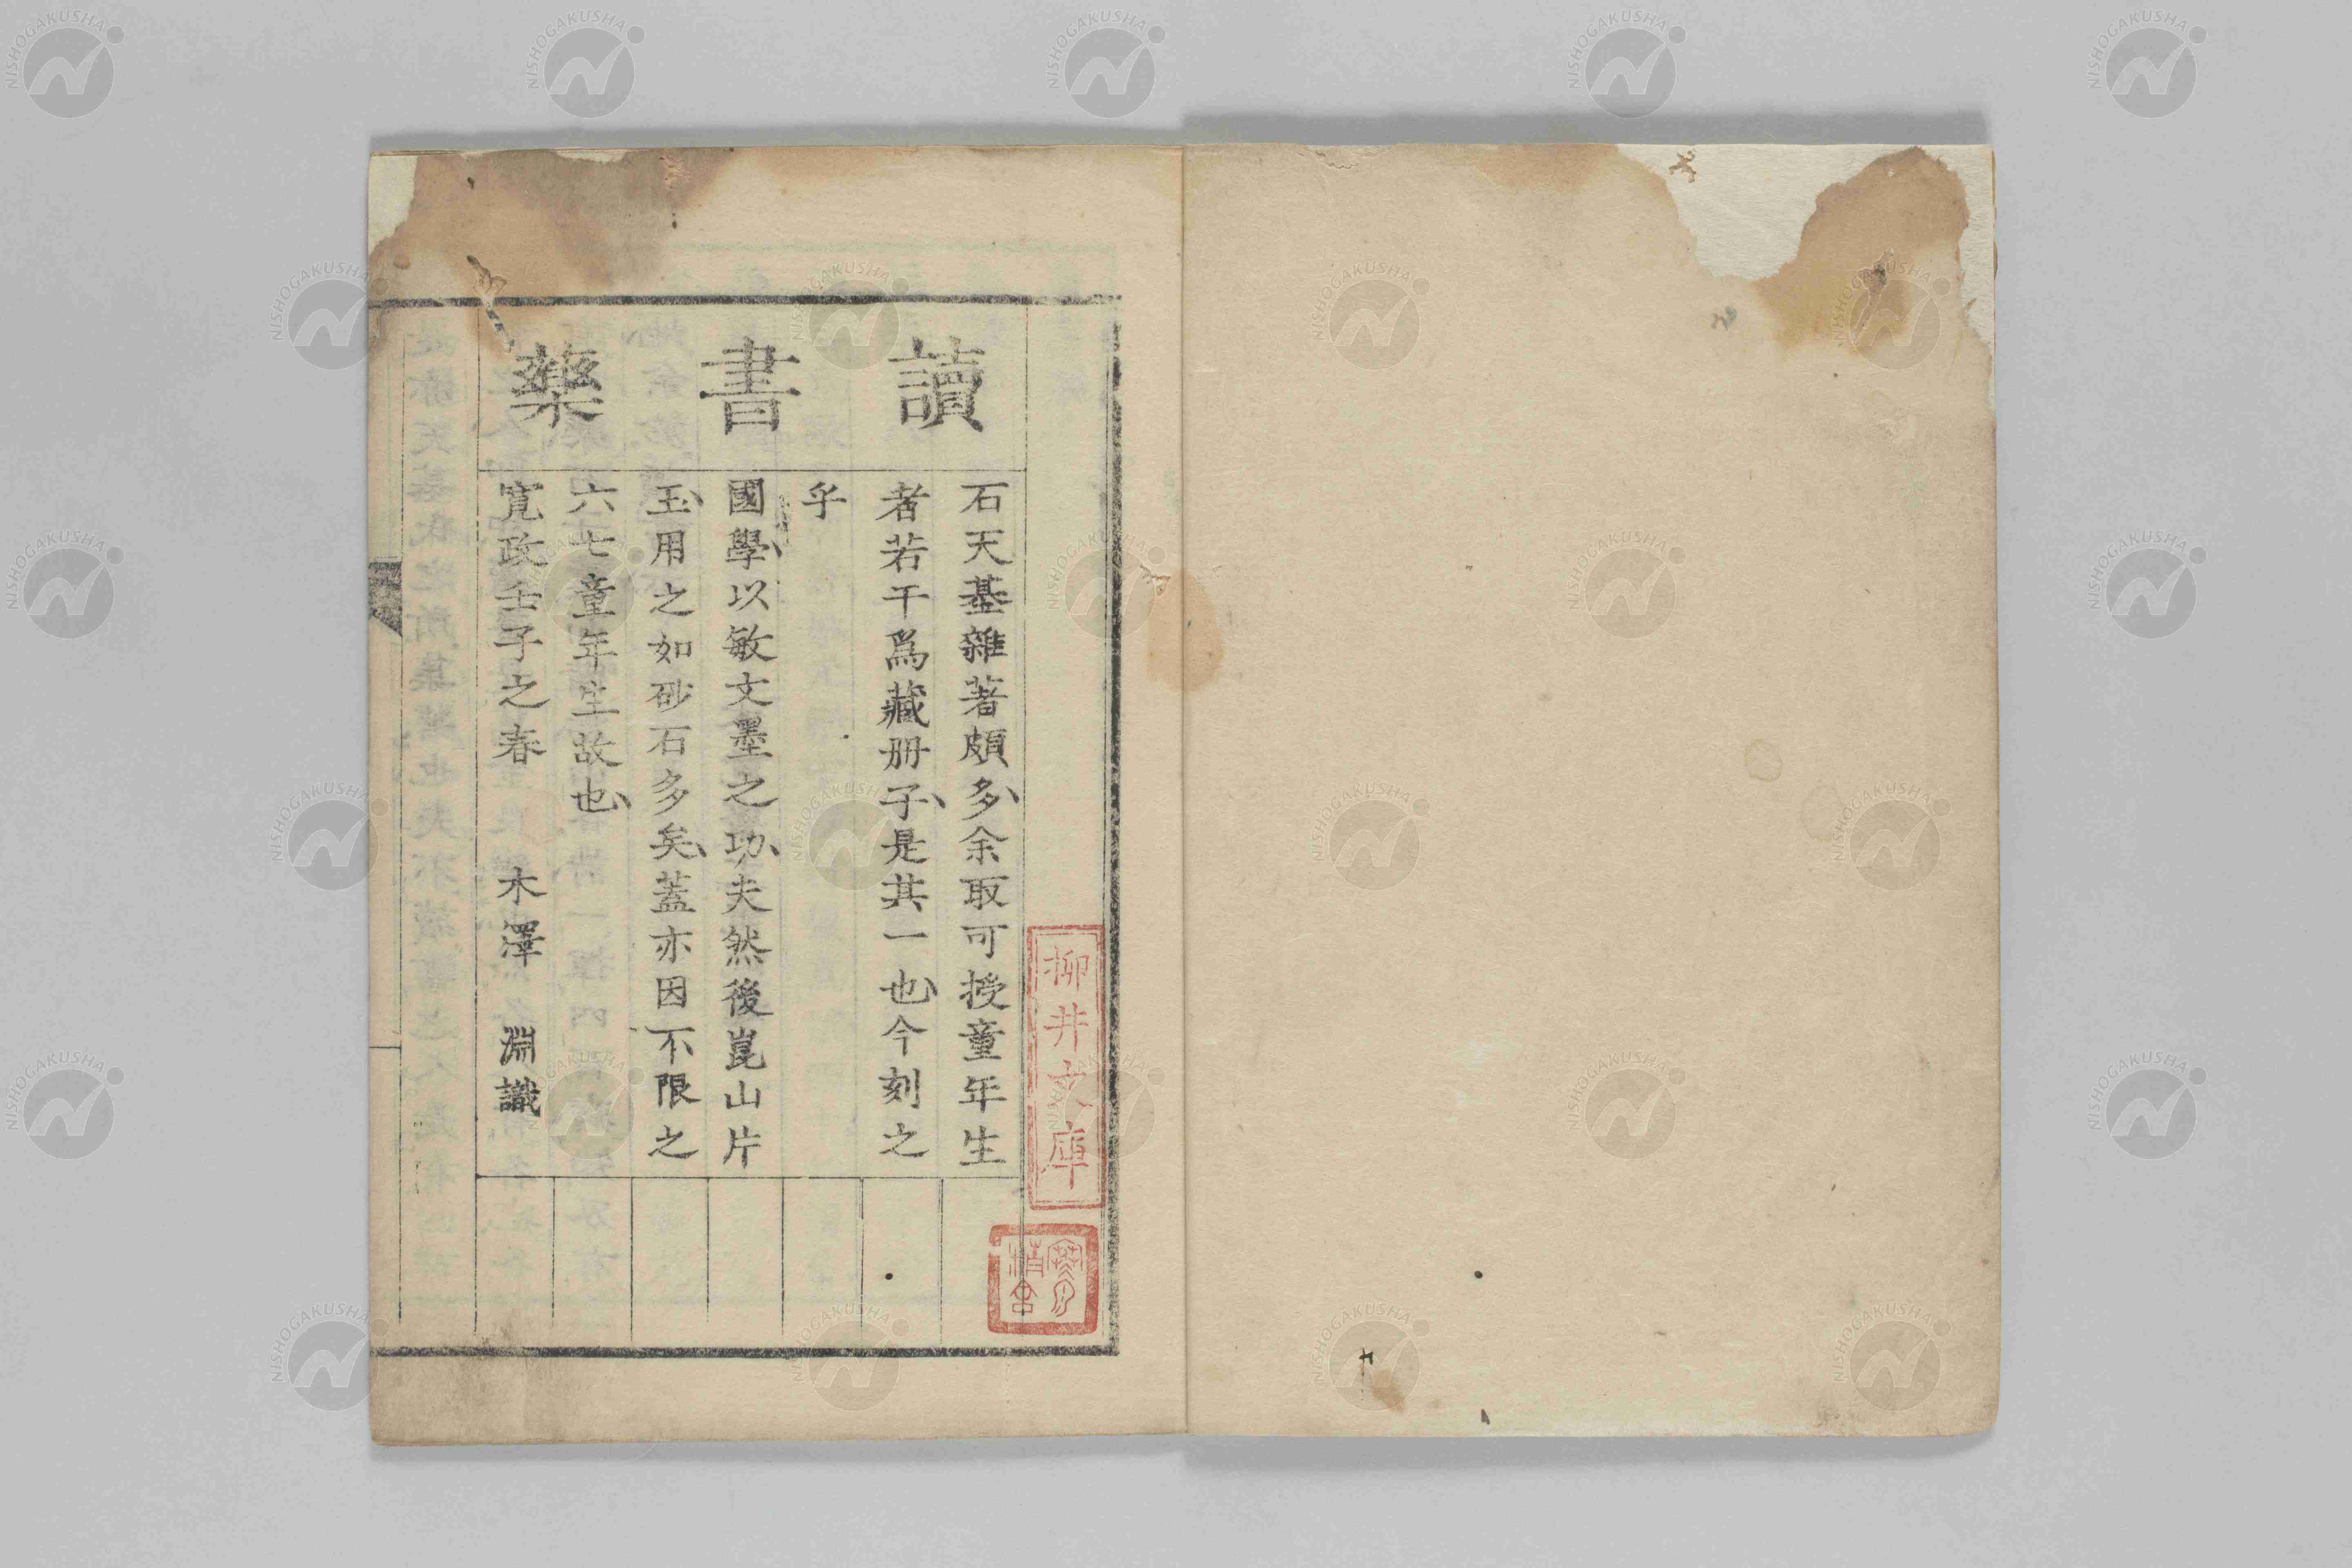 讀書藥
石天基雜著頗多余取可授童年生
者若干爲藏册子是其一也今刻之
乎
國學以敏文墨之功夫然後崑山片
玉用之如砂石多矣蓋亦因不限之
六七童年生故也
寛政壬子之春　木澤　淵識
柳井文庫
NISHOGAKUSHA